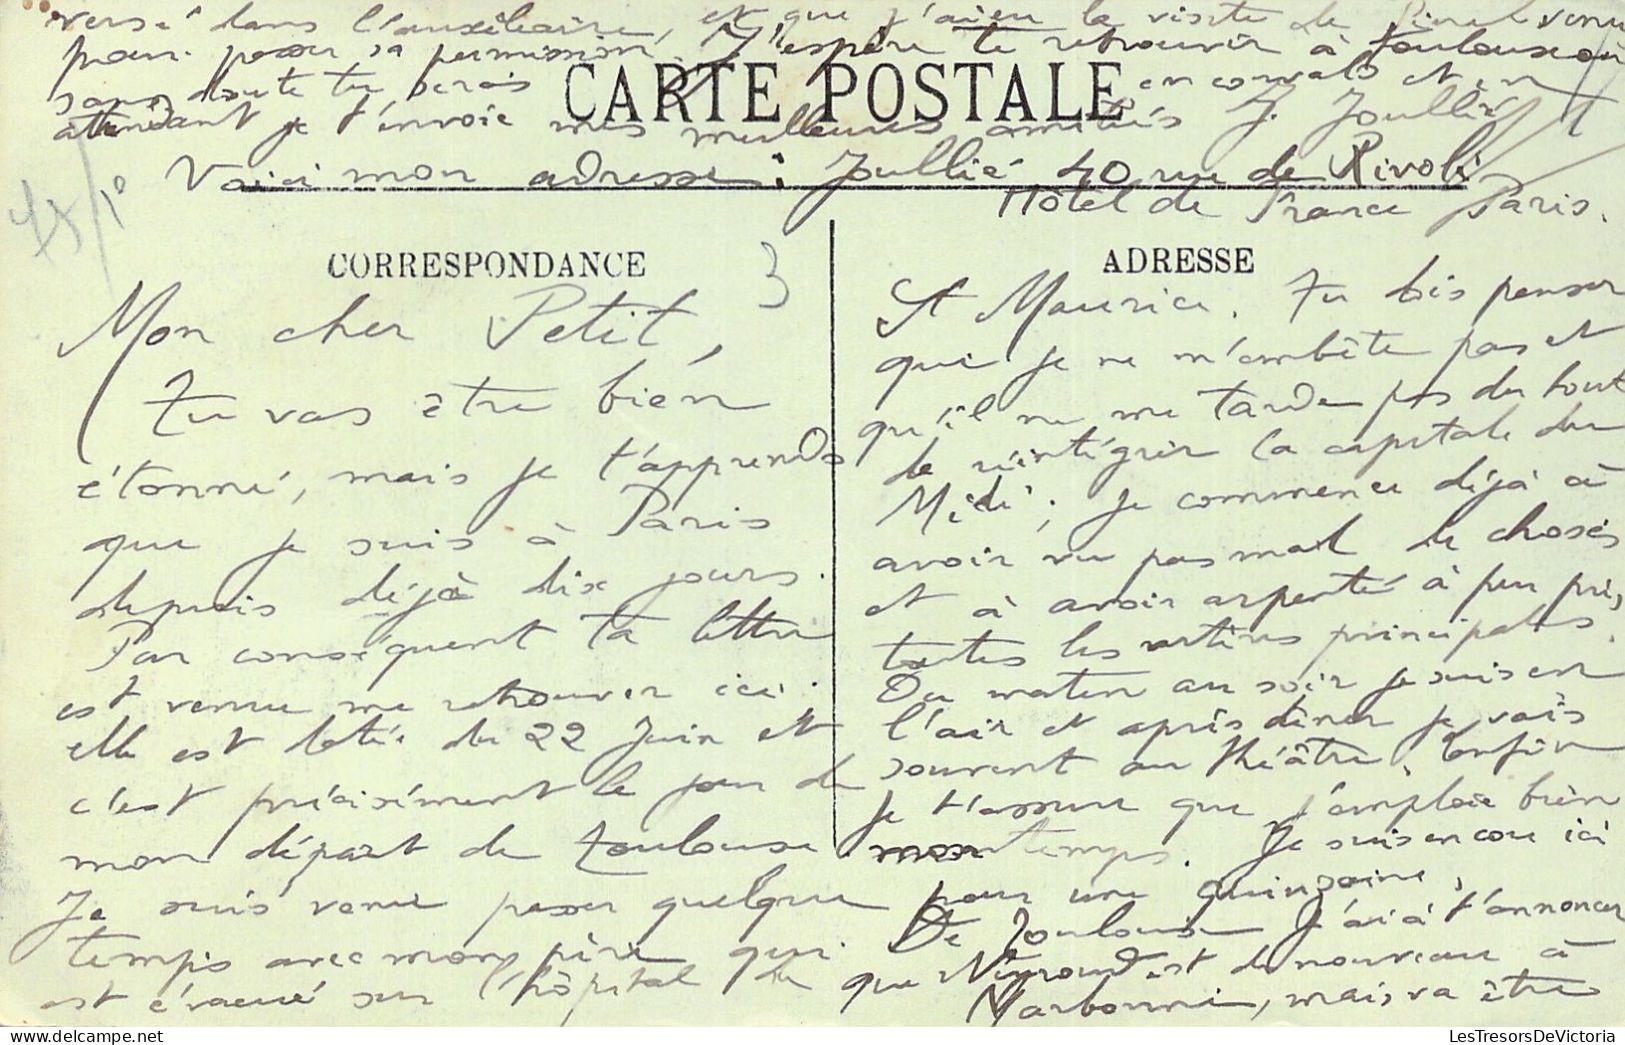 CARTE POSTALE
CORRESPONDANCE
Mon cher Petit,
Tu vas être bien
étonné, mais je t'apprends
que je suis à Paris
depuis déjà dix jours.
Par conséquent ta lettre
est venue me retrouver ici.
elle est datée du 22 Juin et
c'est précisément le jour de
mon départ de Toulouse
Je suis venu passer quelque
temps avec mon père qui
est évacué sur l'hôpital de
ADRESSE
St Maurice. Tu dois penser
que je ne m'embête pas et
qu'il ne me tarde pas du tout
de réintégrer la capitale du
Midi; je commence déjà à
avoir vu pas mal de choses
et à avoir arpenté à peu près
toutes les artères principales.
Du matin au soir je suis en
l'air et après dîner je vais
souvent au théâtre. Enfin
je t'assure que j'emploie bien
mon temps. Je suis encore ici
pour une quinzaine.
De Toulouse j'ai à t'annoncer
que est de nouveau à
Narbonne, mais va être
versé dans l'auxiliaire, et que j'ai eu la visite de Pinel venu
pour passer sa permission. J'espère te retrouver à Toulouse où
sans doute tu seras en convalo et en
attendant je t'envoie mes meilleures amitiés J. Joullié
Voici mon adresse: Joullié 40 rue de Rivoli
Hôtel de France Paris.
3
LesTresorsDeVictoria